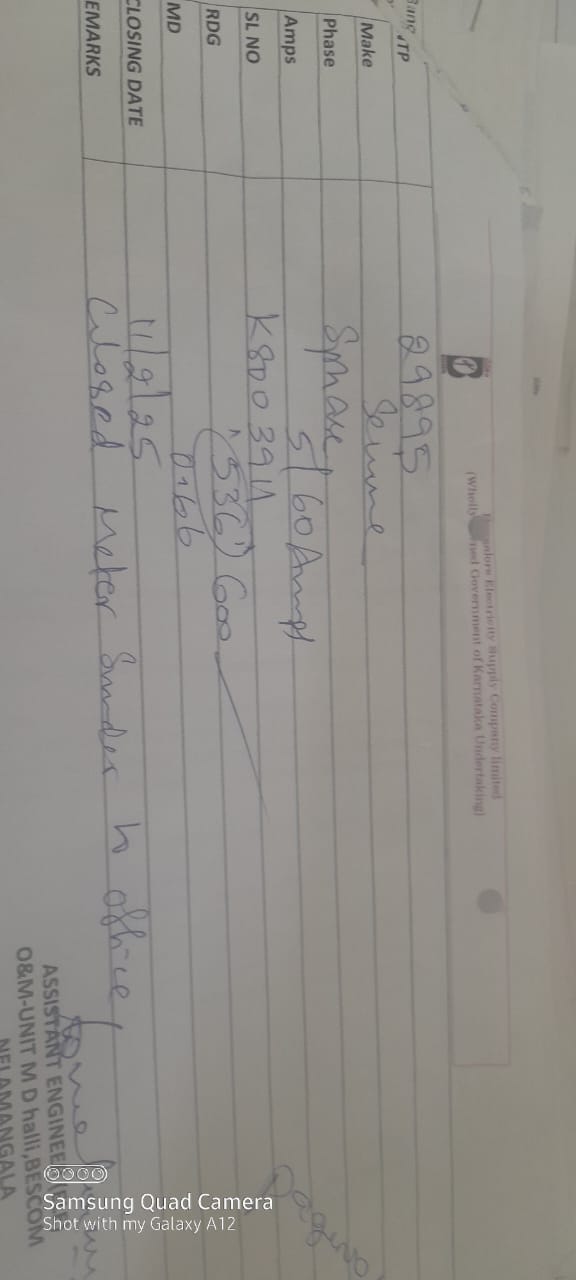 Bangalore Electricity Supply Company limited
(Wholly owned Government of Karnataka Undertaking)
TP 29895
Make
Phase Sphase
Amps 5/60 Amps
SL NO K8003911
RDG "536" 600
MD 0.66
CLOSING DATE 11/2/25
EMARKS Closed Meter to office
ASSISTANT ENGINEE
O&M-UNIT M D halli,BESCOM
NELAMANGALA
Samsung Quad Camera
Shot with my Galaxy A12